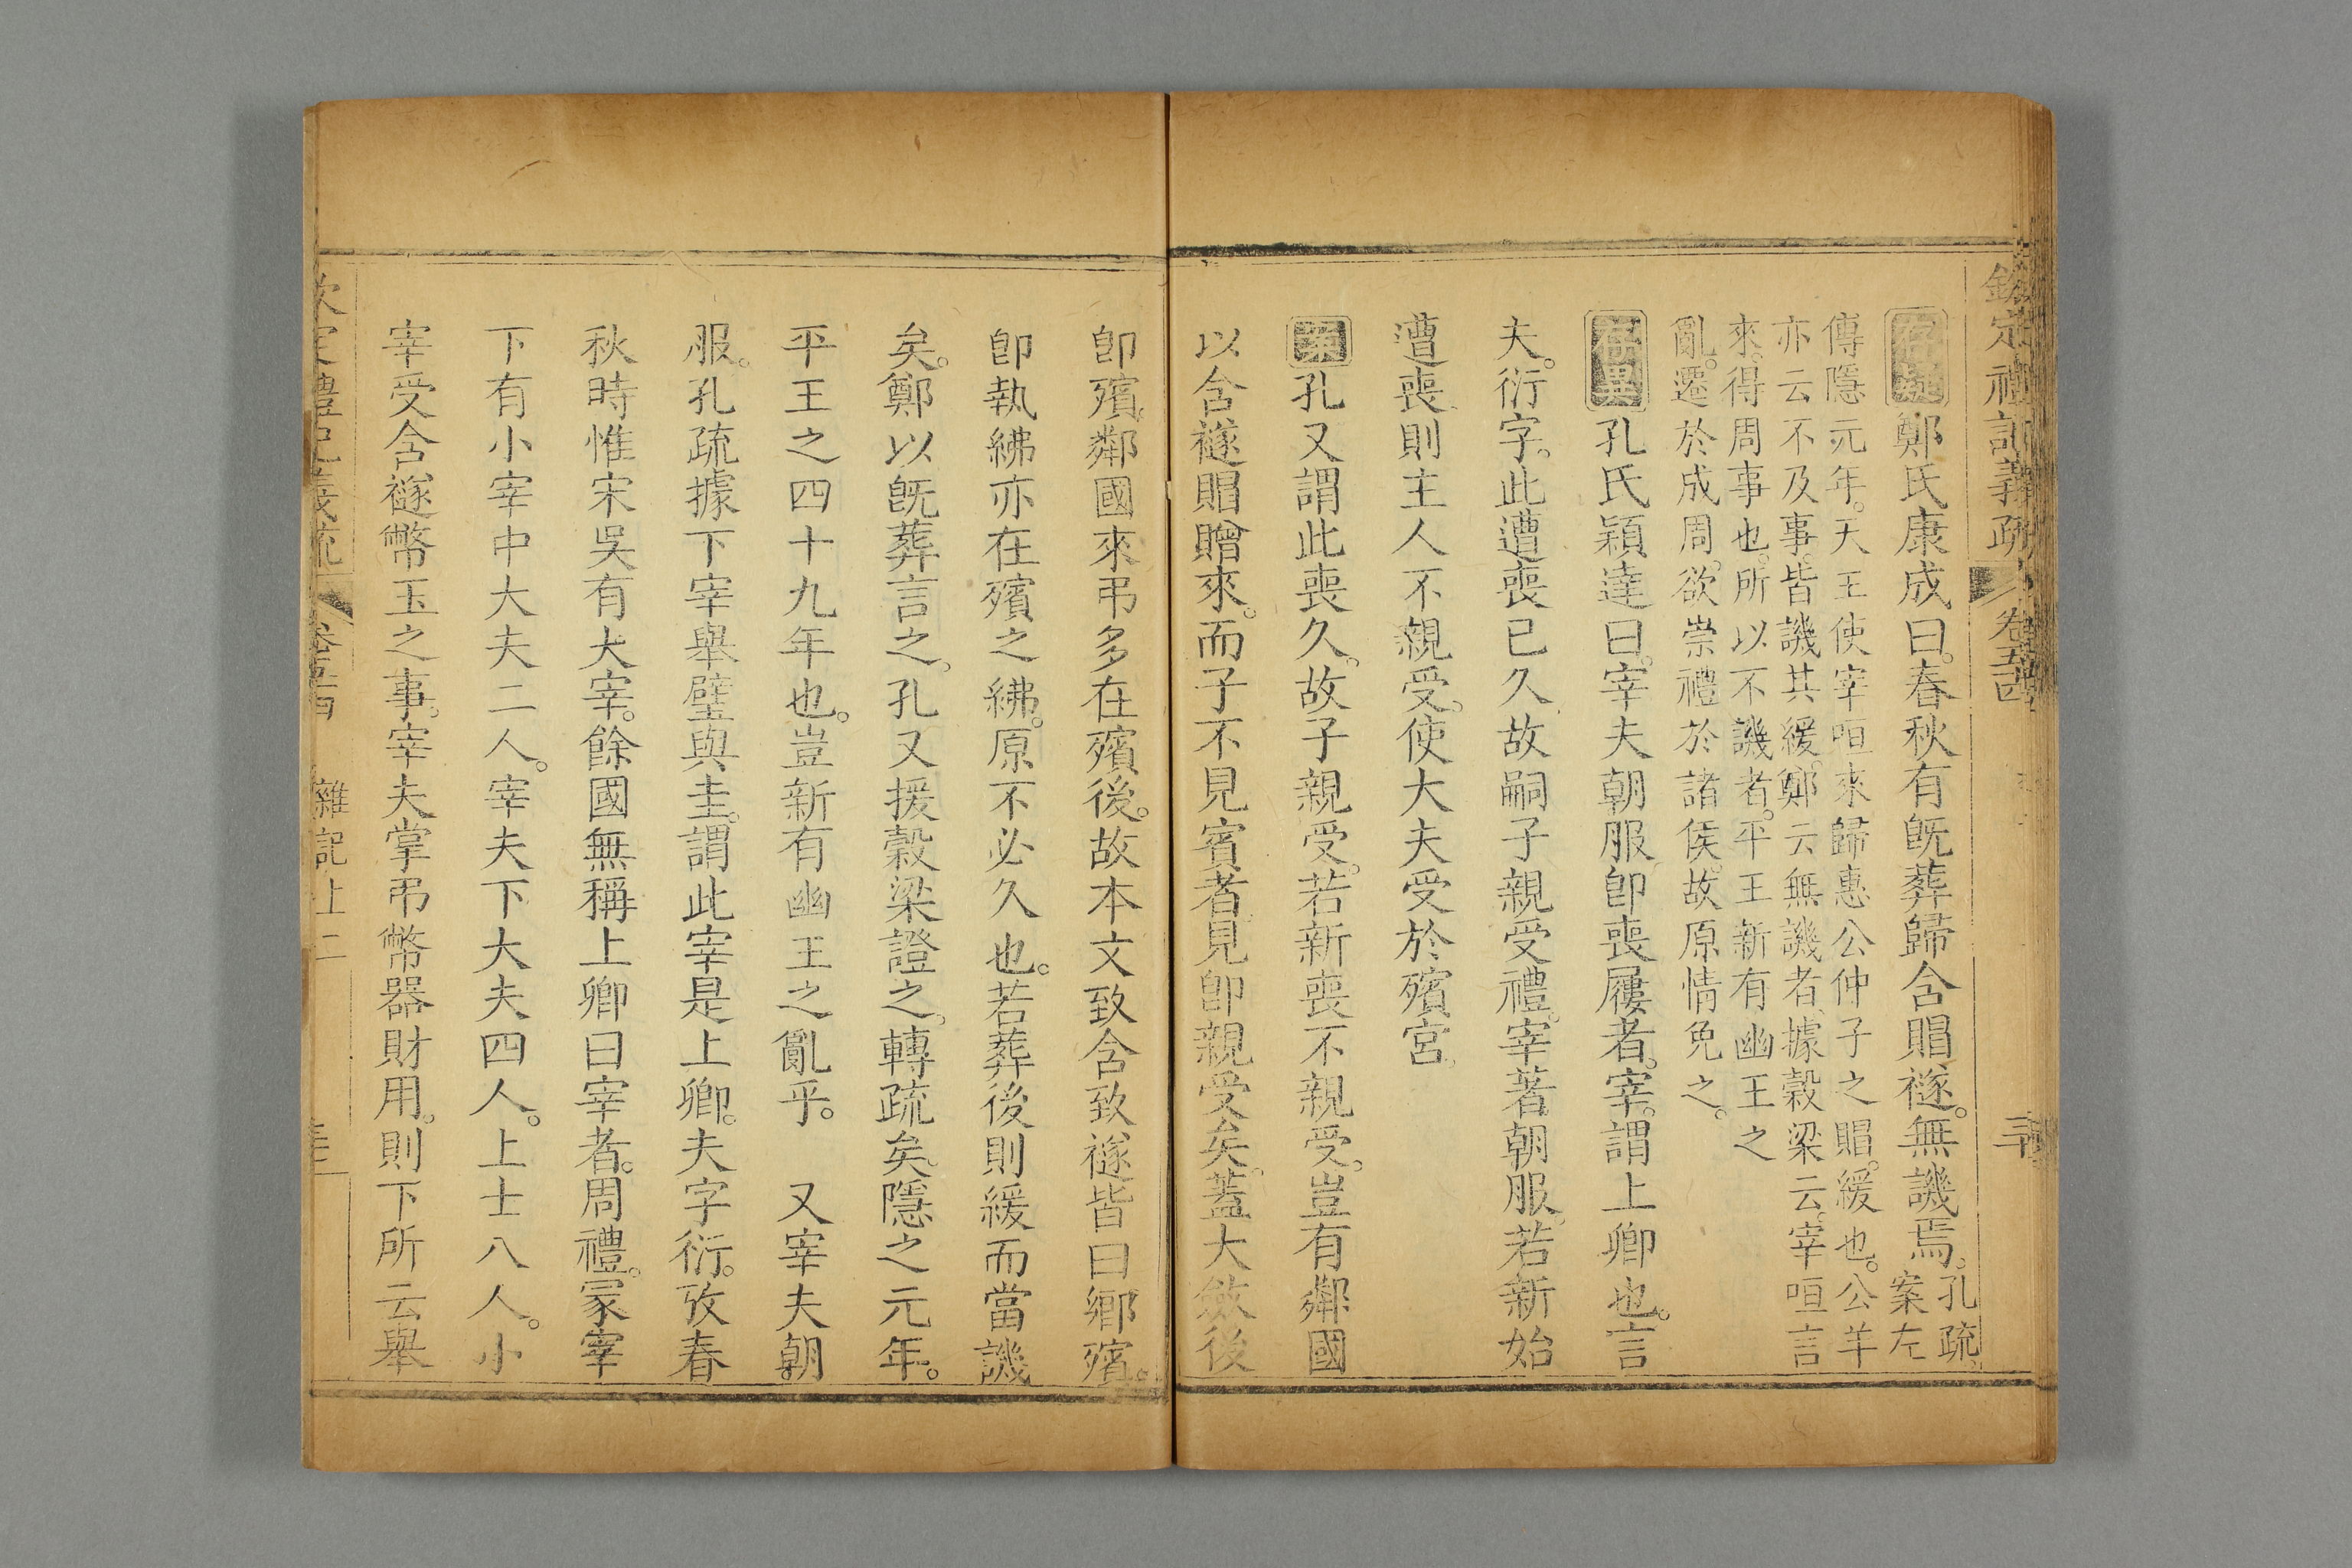 欽定禮記義疏 卷五十四
存疑鄭氏康成曰。春秋有旣葬歸含賵襚。無譏焉。孔疏、
案左
傳隱元年。天王使宰咺來歸惠公仲子之賵。緩也。公羊
亦云不及事。皆譏其緩。鄭云無譏者、據穀梁云。宰咺言
來。得周事也。所以不譏者。平王新有幽王之
亂。遷於成周。欲崇禮於諸侯。故原情免之。
存異孔氏穎達曰。宰夫朝服卽喪屨者。宰。謂上卿也。言
夫。衍字。此遭喪已久、故嗣子親受禮。宰著朝服。若新始
遭喪、則主人不親受。使大夫受於殯宮、
案孔又謂此喪久。故子親受。若新喪不親受。豈有鄰國
以含襚賵贈來。而子不見賓者、見卽親受矣。蓋大斂後
卽殯。鄰國來弔多在殯後。故本文致含致襚皆曰鄉殯。
卽執紼亦在殯之紼。原不必久也。若葬後則緩而當譏
矣。鄭以旣葬言之。孔又援穀梁證之。轉疏矣。隱之元年。
平王之四十九年也。豈新有幽王之亂乎。　又宰夫朝
服。孔疏據下宰舉璧與圭。謂此宰是上卿。夫字衍。攷春
秋時惟宋吳有大宰。餘國無稱上卿曰宰者。周禮。冢宰
下有小宰中大夫二人。宰夫下大夫四人。上士八人。小
宰受含襚幣玉之事。宰夫掌弔幣器財用。則下所云舉
欽定禮記義疏 卷五十四 雜記上二